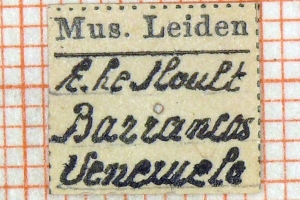 Mus. Leiden
E. Le Moult
Barrancas
Venezuela